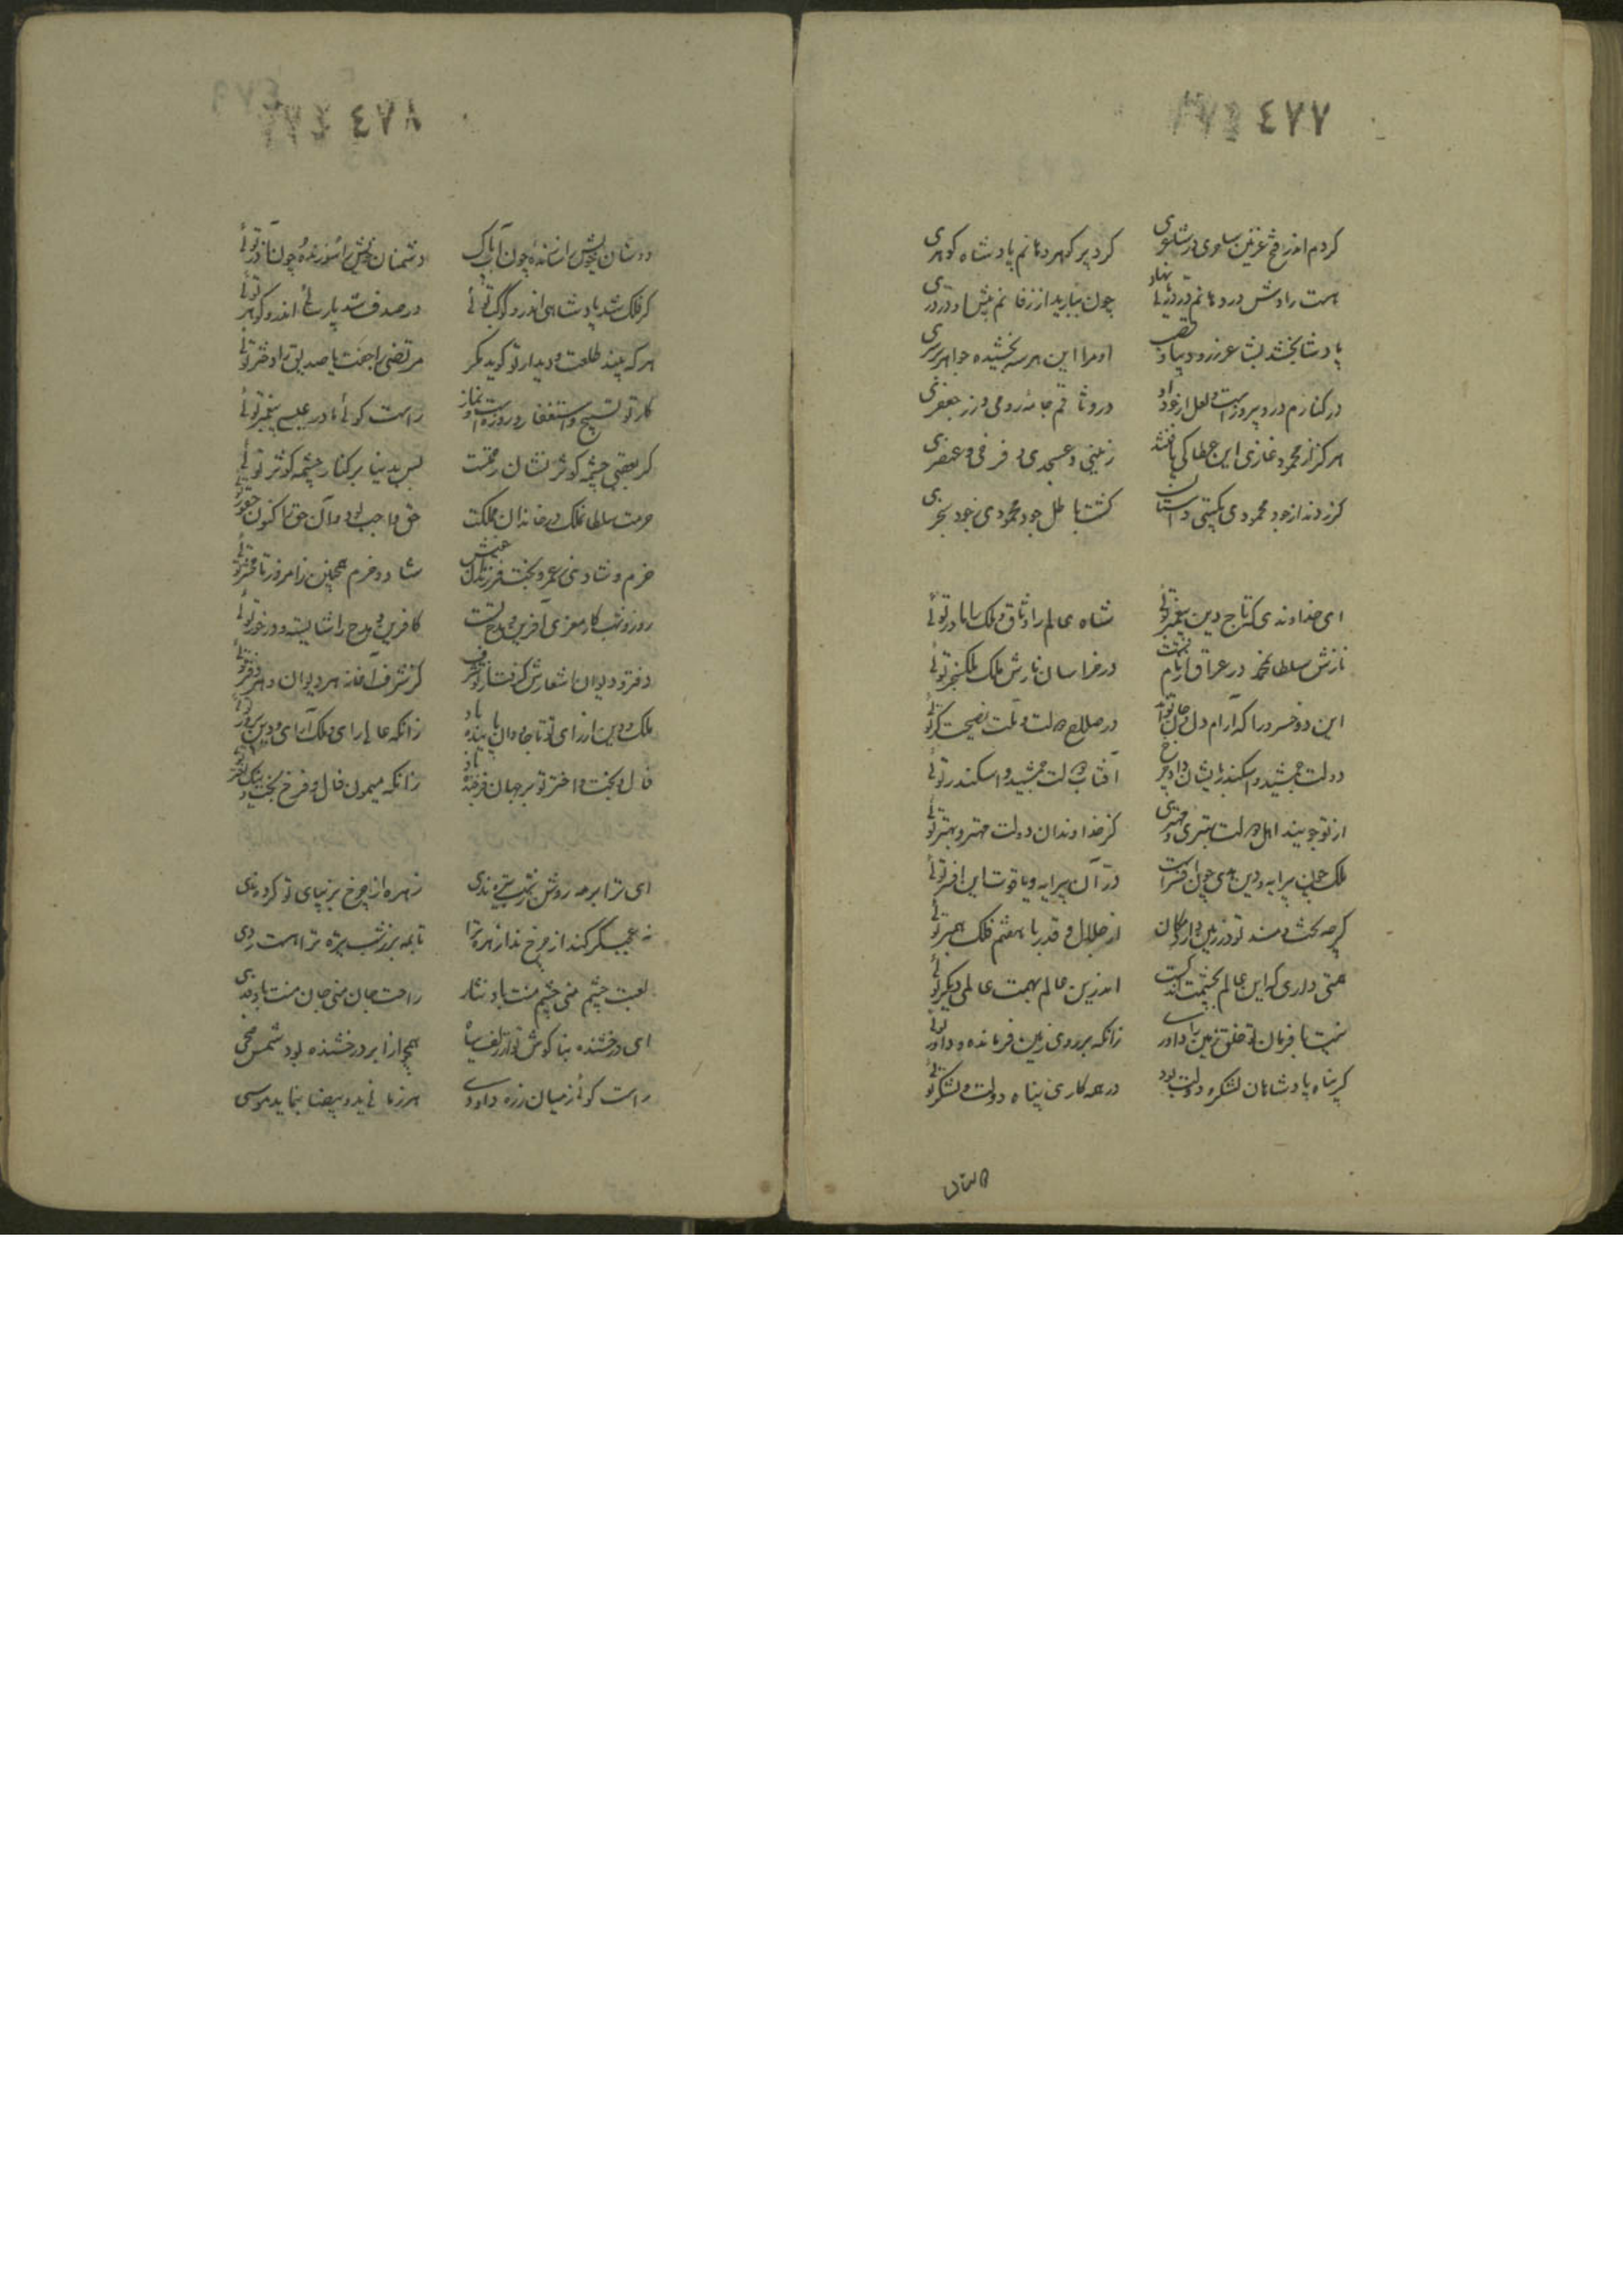 ٤٧٧
کردم اندر فتح غزنین ساحری در شاعری
کرد پر گهر دهانم پادشاه گوهری
همت رادش در دهانم در دریائی نهاد
چون ببارید از زفانم پیش او در دری
پادشا بخشد بشاعر زر و دیبا و قصب
او مرا این هر سه بخشیده جواهر بر سری
در کنارم در و پیروزه است و لعل از جود او
در وثاقم جامه رومی و زر جعفری
هرگز از محمود غازی این عطا کی یافتند
زینبی و عسجدی و فرخی و عنصری
گر زدند از جود محمودی بگیتی داستان
گشت باطل جود محمودی ز جود سنجری
ای خداوندی که تاج دین پیغمبر توئی
شاه عالم را وثاق و ملک بابا در توئی
نازش سلطان محمد در عراق ایام تست
در خراسان نازش ملک ملک سنجر توئی
این دو خسرو را که آرام دل و جان تواند
در صلاح دولت و ملت نصیحت گر توئی
دولت جمشید و اسکندر بایشان داد چرخ
آفتاب دولت جمشید و اسکندر توئی
از تو جویند اهل دولت بهتری و مهتری
کز خداوندان دولت مهتر و بهتر توئی
ملک چون پیرایه و دین هدی چون افسر است
در آن پیرایه و یاقوت این افسر توئی
گرچه تخت و مسند تو در زمین دارد مکان
از جلال و قدر با هفتم فلک همبر توئی
همتی داری که این عالم بچشمت اندکست
اندرین عالم بهمت عالمی دیگر توئی
نیست با فرمان تو خلق زمین را داوری
زانکه بر روی زمین فرمانده و داور توئی
گر پناه پادشاهان لشکر و دولت بود
در همه کاری پناه دولت و لشکر توئی
دوستان
٤٧٨
دوستان خویش را سازنده چون آب پاک
دشمنان خویش را سوزنده چون آذر توئی
گر فلک شد پادشاهی اندرو کوکب توئی
ور صدف شد پارسائی اندرو گوهر توئی
هر که بیند طلعت و دیدار تو گوید مگر
مرتضی را جفت یا صدیق را دختر توئی
کار تو تسبیح و استغفار و روزه است و نماز
راست گوئی مادر عیسی پیغمبر توئی
گر بعقبی چشمه کوثر نشان رحمتست
پس بدنیا بر کنار چشمه کوثر توئی
حرمت سلطان ملک در خاندان مملکت
حق واجب بود و آن حق را کنون حق‌ور توئی
خرم و شادی ز عمر و بخت فرزندان عیش
شاد و خرم همچنین ز امروز تا محشر توئی
روز و شب کار معزی آفرین و مدح تست
کافرین و مدح را شایسته و در خور توئی
دفتر و دیوان اشعارش گرفت از تو شرف
کز شرف آغاز هر دیوان و هر دفتر توئی
ملک و دین از رای تو تا جاودان پاینده باد
زانکه عالی رای و ملک آرای و دین پرور توئی
فال و بخت و اختر تو بر جهان فرخنده باد
زانکه میمون فال و فرخ بخت و نیک اختر توئی
ای ترا بر مه روشن ز شب تیره ردی
زهره از چرخ بزیر پای تو کرده ندی
نه عجب گر کند از چرخ ندا زهره ترا
تا بمه بر ز شب تیره ترا هست ردی
لعبت چشم منی چشم منت باد نثار
راحت جان منی جان منت باد فدی
ای درخشنده بناگوش تو از زلف سیاه
همچو از ابر درخشنده بود شمس ضحی
راست گوئی ز میان زره داودی
هر زمانی ید و بیضا بنماید موسی